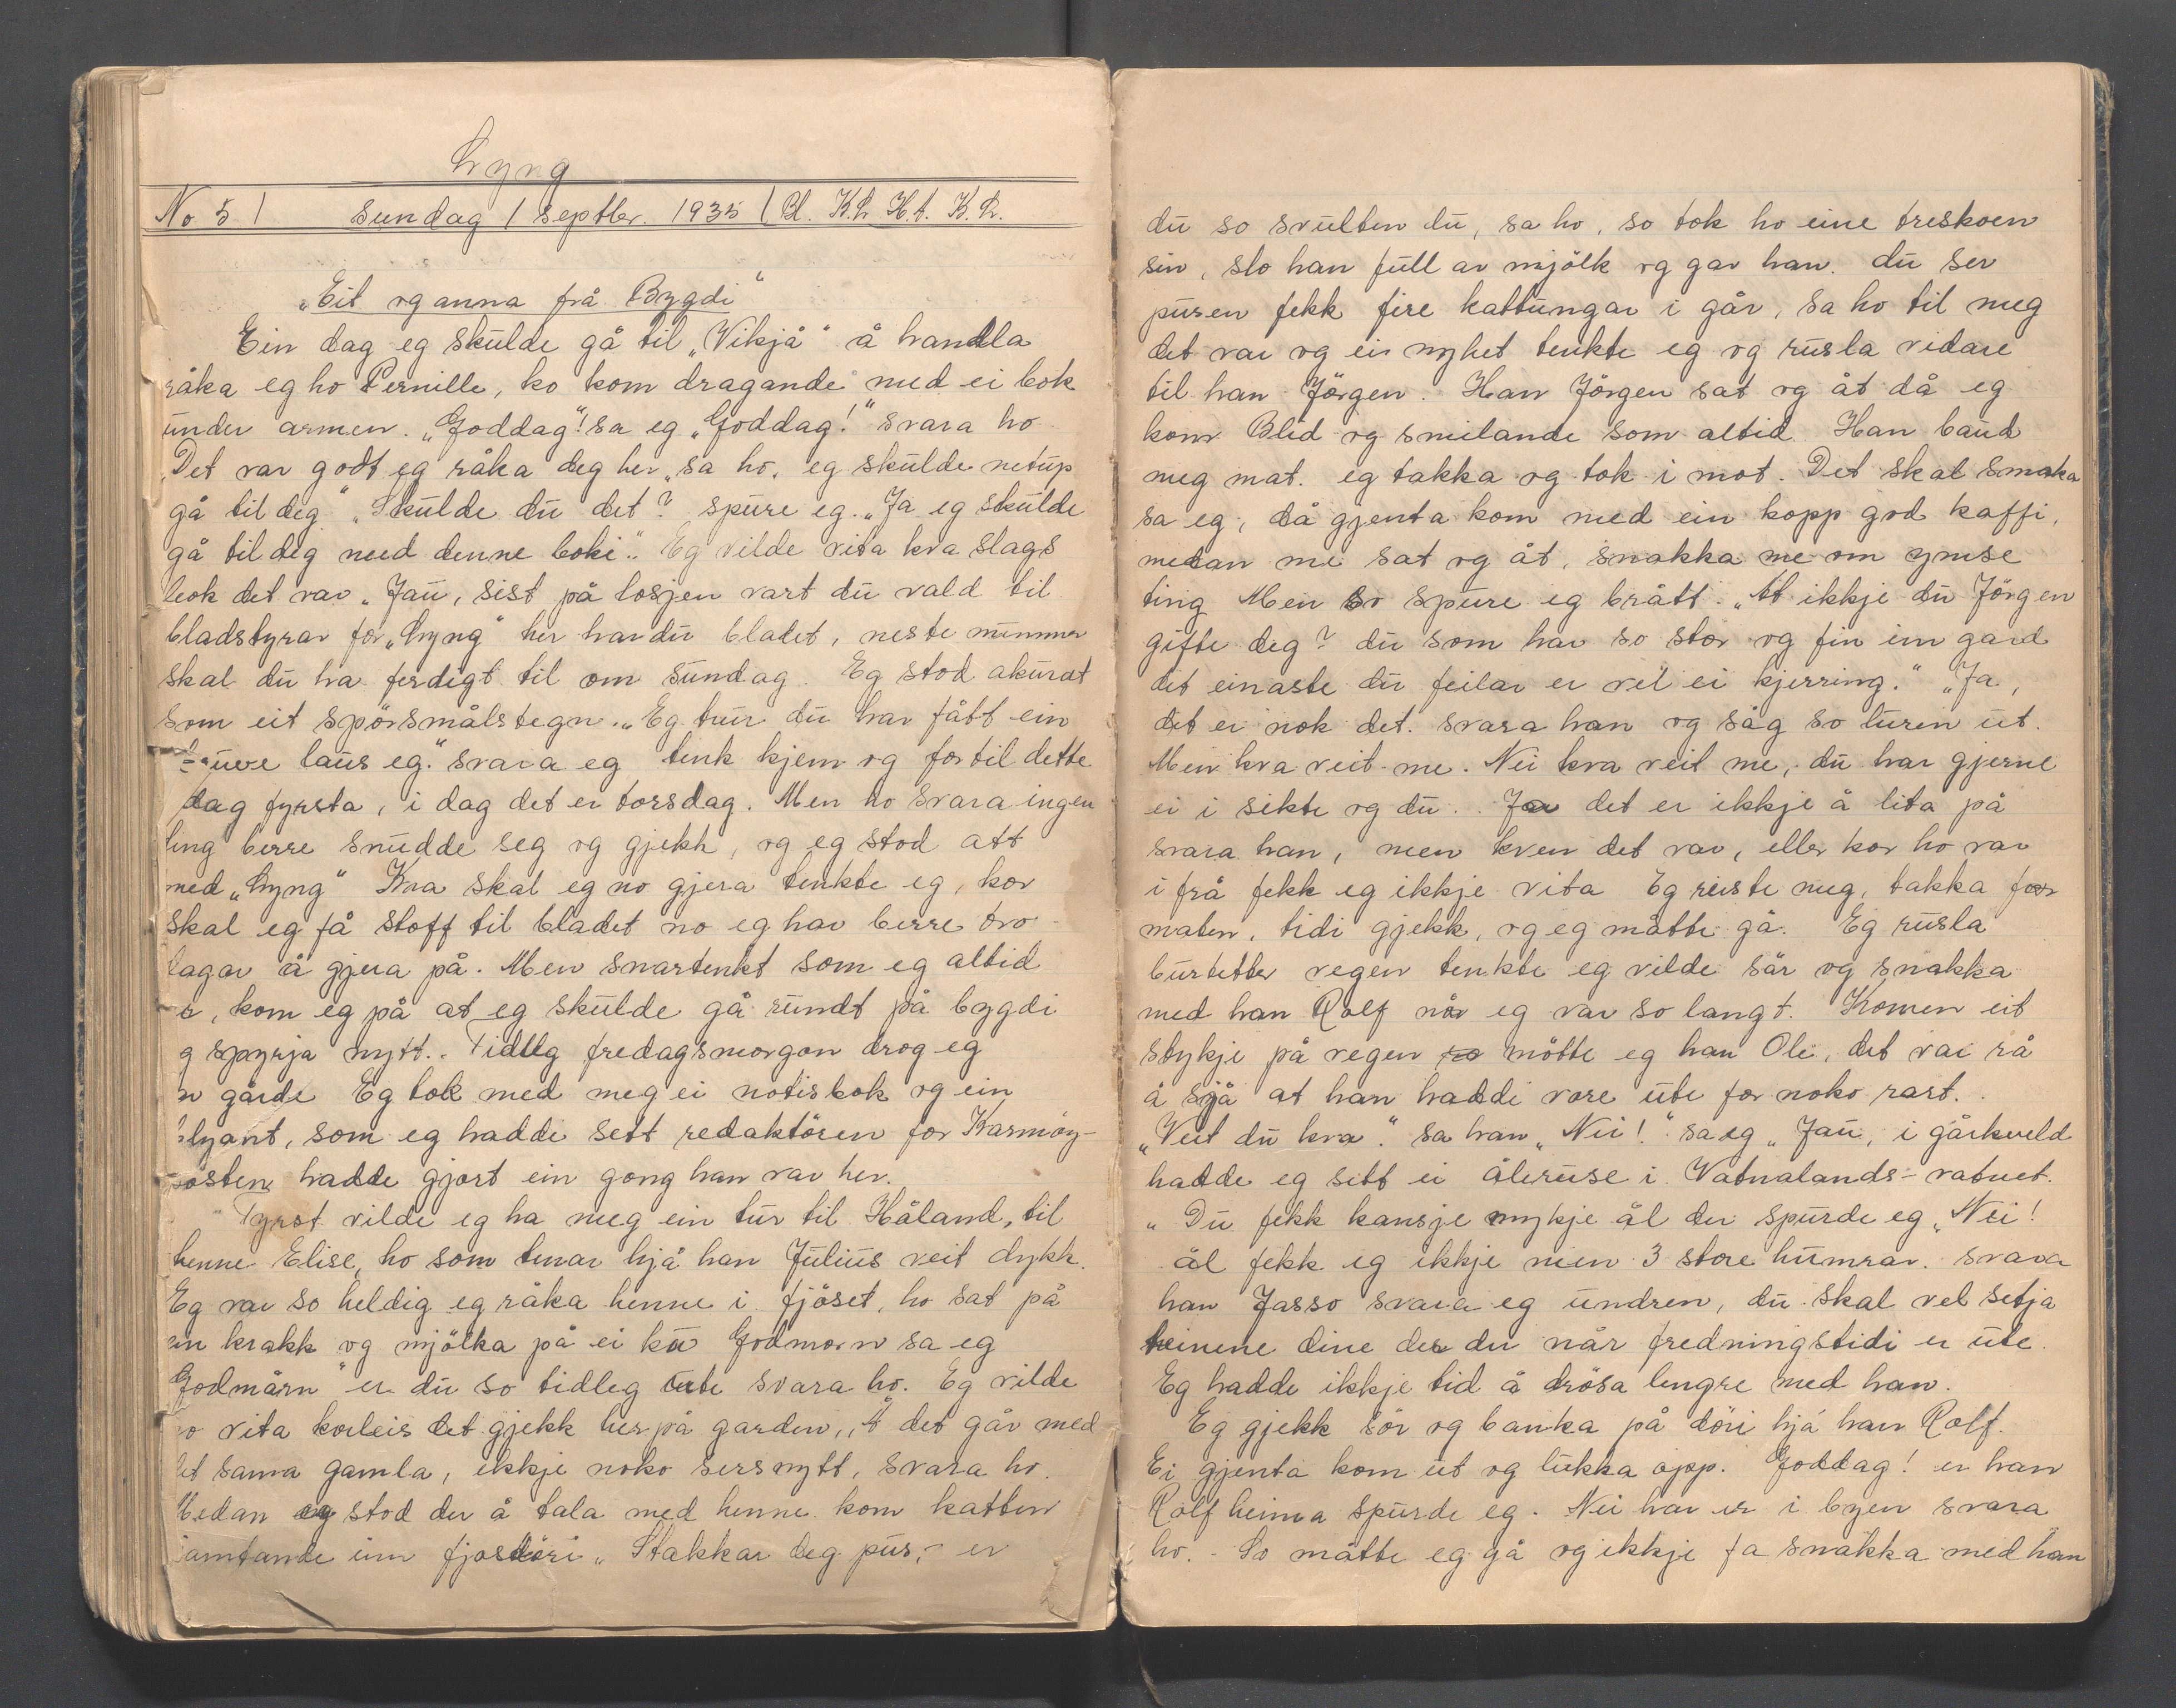 Lyng
No 5 | Sundag 1 septbr. 1935 | Bl. K.L H.t. K.L.
„Eit og anna frå Bygdi"
Ein dag eg skulde gå til „Vikjå" å handla
råka eg ho Pernille, ho kom dragande med ei bok
under armen. „Goddag"! sa eg „Goddag!" svara ho
Det var godt eg råka deg her „sa ho. eg skulde netup
gå til deg" „Skulde du det? spure eg. „Ja eg skulde
gå til deg med denne boki". Eg vilde vita kva slags
bok det var „Jau, sist på losjen vart du vald til
bladstyrar for „Lyng" her har du bladet, neste nummer
skal du ha ferdigt til om sundag. Eg stod akurat
som eit spörsmålstegn. „Eg trur du har fått ein
laus eg." svara eg tenk kjem og for til dette
dag fyrsta, i dag det er torsdag. Men ho svara ingen
ting berre snudde seg og gjekk, og eg stod att
med „Lyng" Kva skal eg no gjera tenkte eg, kor
skal eg få stoff til bladet no eg har berre tvo
dagar å gjera på. Men snartenkt som eg altid
, kom eg på at eg skulde gå rundt på bygdi
g spyrja nytt. Tidleg fredagsmorgon drog eg
gårde Eg tok med meg ei notisbok og ein
blyant, som eg hadde sett redaktören for Karmöy-
posten hadde gjort ein gong han var her.
Fyrst vilde eg ha meg ein tur til Håland, til
henne Elise, ho som tenar hjå han Julius veit dykk.
Eg var so heldig eg råka henne i fjöset, ho sat på
ein krakk og mjölka på ei ku Godmorn sa eg
Godmårn" er du so tidleg ute svara ho. Eg vilde
no vita korleis det gjekk her på garden, „Å det går med
det sama gamla, ikkje noko sersnytt, svara ho.
Medan eg stod der å tala med henne kom katten
jamtande inn fjosdöri „Stakkar deg pus, - er
du so svulten du, sa ho, so tok ho eine treskoen
sin, slo han full av mjölk og gav han. du ser
pusen fekk fire kattungar i går, sa ho til meg
det var og ein nyhet tenkte eg og rusla vidare
til han Jörgen. Han Jörgen sat og åt då eg
kom Blid og smilande som altid Han baud
meg mat. eg takka og tok i mot. Det skal smaka
sa eg, då gjenta kom med ein kopp god kaffi,
medan me sat og åt, snakka me om ymse
ting Men so spure eg brått. „At ikkje du Jörgen
gifte deg? du som har so stor og fin inn gard
det einaste du feilar er vel ei kjerring." „Ja,
det er nok det. svara han og såg so luren ut.
Men kva veit me. Nei kva veit me, du har gjerne
ei i sikte og du. Ja det er ikkje å lita på
svara han, men kven det var, eller kor ho var
i frå fekk eg ikkje vita Eg reiste meg, takka for
maten, tidi gjekk, og eg måtte gå. Eg rusla
burtetter vegen tenkte eg vilde sör og snakka
med han Rolf når eg var so langt. Komen eit
stykje på vegen so mötte eg han Ole, det var rå
å sjå at han hadde vore ute for noko rart.
„Veit du kva." sa han „Nei!" sa eg „Jau, i gårkveld
hadde eg sett ei åleruse i Vatnalands-vatnet.
„Du fekk kansje mykje ål der spurde eg „Nei!
ål fekk eg ikkje men 3 store humrar. svara
han Jasso svara eg undren, du skal vel setja
teinene dine der du når fredningstidi er ute.
Eg hadde ikkje tid å drösa lengre med han.
Eg gjekk sör og banka på döri hjå han Rolf.
Ei gjenta kom ut og lukka opp. Goddag! er han
Rolf heima spurde eg. Nei han er i byen svara
ho. - So måtte eg gå og ikkje fa snakka med han